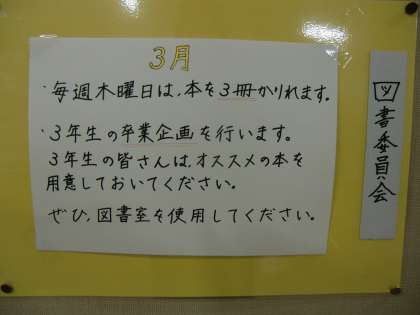 3月
・毎週木曜日は、本を3冊かりれます。
・3年生の卒業企画を行います。
3年生の皆さんは、オススメの本を
用意しておいてください。
ぜひ、図書室を使用してください。
図書委員会